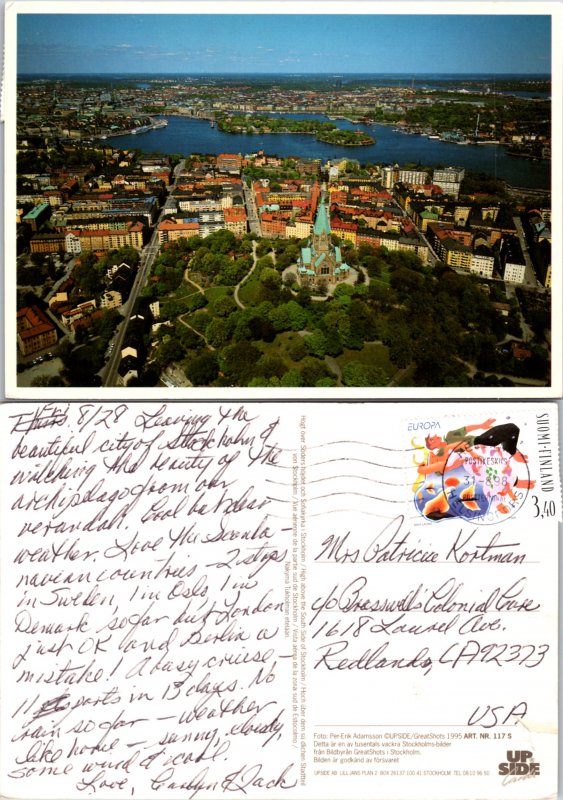 Thurs 8/28 Leaving the
beautiful city of Stockholm &
watching the beauty of the
archipelago from our
verandah. Cool but clear
weather. Love the Scandi-
navian countries 2 stops
in Sweden, 1 in Oslo, 1 in
Demark so far but London
just OK and Berlin a
mistake! A busy cruise -
11 ports in 13 days. No
rain so far - weather
like home - sunny, cloudy,
some wind & cool.
Love, Carolyn & Jack
Högt över Söders höjder och Sofiakyrka i Stockholm / High above the South Side of Stockholm / Hoch über dem südlichen Stadtteil
von Stockholm / Vue aérienne de la partie sud de Stockholm / Vista aérea de la zona sud de Estocolmo /
Näkymä Tukholman eteläer.
EUROPA
SUOMI-FINLAND
3,40
POSTIKESKUS
31.-8.98
HELSINKI
Mrs Patricia Kortman
c/o Braswell's Colonial Care
1618 Laurel Ave.
Redlands, CA 92373
USA
Foto: Per-Erik Adamsson ©UPSIDE/GreatShots 1995 ART. NR. 117 S
Detta är en av tusentals vackra Stockholms-bilder
från Bildbyrån GreatShots i Stockholm.
Bilden är godkänd av försvaret
UPSIDE AB LILL-JANS PLAN 2 BOX 26137 100 41 STOCKHOLM TEL 08-10 96 50
UP
SIDE
Cards